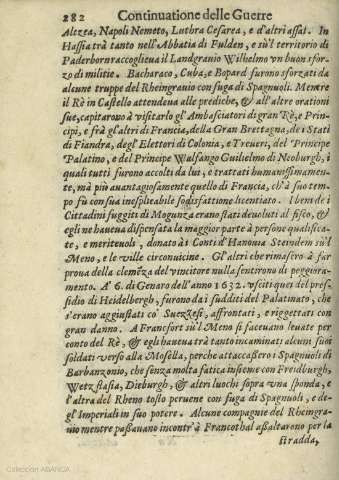 282 Continuatione delle Guerre
Altzea, Napoli Nemeto, Luthra Cesarea, e d'altri assai. In
Hassia trà tanto nell'Abbatia di Fulden, e sù'l territorio di
Paderborn raccoglieua il Landgrauio Wilhelmo vn buon sfor-
zo di militie. Bacharaco, Cuba, e Bopard furono sforzati da
alcune truppe del Rheingrauio con fuga di Spagnuoli. Mentre
il Rè in Castello attendeua alle prediche, & all'altre orationi
sue, capitarono à visitarlo gl'Ambasciatori di gran Rè, e Prin-
cipi, e frà gl'altri di Francia, della Gran Bretagna, de i Stati
di Fiandra, degl'Elettori di Colonia, e Treueri, del Principe
Palatino, e del Principe Walfango Guilielmo di Neoburgh, i
quali tutti furono accolti da lui, e trattati humanissimamen-
te, mà più auantagiosamente quello di Francia, ch'à suo tem-
po fù con sua inesplicabile sodisfattione licentiato. I beni de i
Cittadini fuggiti di Mogunza erano stati deuoluti al fisco, &
egli ne haueua dispensata la maggior parte à persone qualifica-
te, e meriteuoli, donato à i Conti d'Hanouia Steindem sù'l
Meno, e le ville circonuicine. Gl'altri che rimasero à far
proua della clemēza del vincitore nulla sentirono di peggiora-
mento. A' 6. di Genaro dell'anno 1632. vsciti quei del pres-
sidio di Heidelbergh, furono da i sudditi del Palatinato, che
s'erano aggiustati co' Suezzesi, affrontati, e riggettati con
gran danno. A Francfort sù'l Meno si faceuano leuate per
conto del Rè, & egli haueua trà tanto incaminati alcuni suoi
soldati verso alla Mosella, perche attaccassero i Spagnuoli di
Barbanzonio, che senza molta fatica insieme con Freidburgh,
Wetzflasia, Dieburgh, & altri luochi sopra vna sponda, e
l'altra del Rheno tosto peruene con fuga di Spagnuoli, e de-
gl'Imperiali in suo potere. Alcune compagnie del Rheingra-
uio mentre passauano incontr'à Francothal assaltarono per la
stradda,
Colección ABANCA